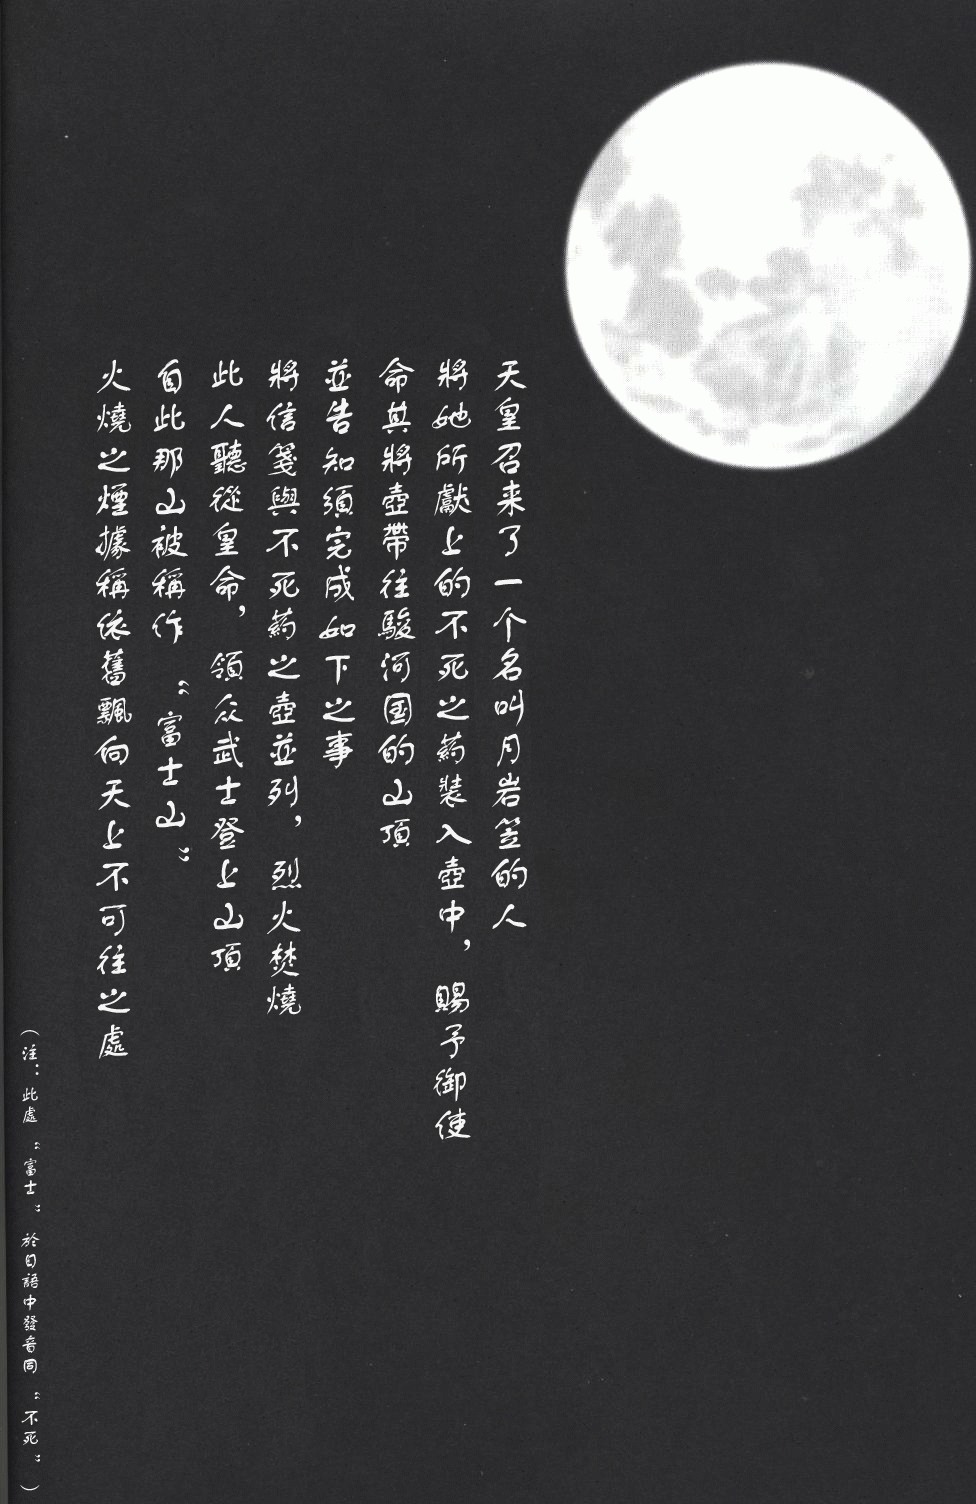 天皇召来了一个名叫月岩笠的人
將她所獻上的不死之药裝入壺中，賜予御使
命其將壺帶往駿河国的山頂
並告知須完成如下之事
將信箋與不死药之壺並列，烈火焚燒
此人聽從皇命，領众武士登上山頂
自此那山被稱作“富士山”
火燒之煙據稱依舊飄向天上不可往之處
（注：此處“富士”於日語中發音同“不死”）